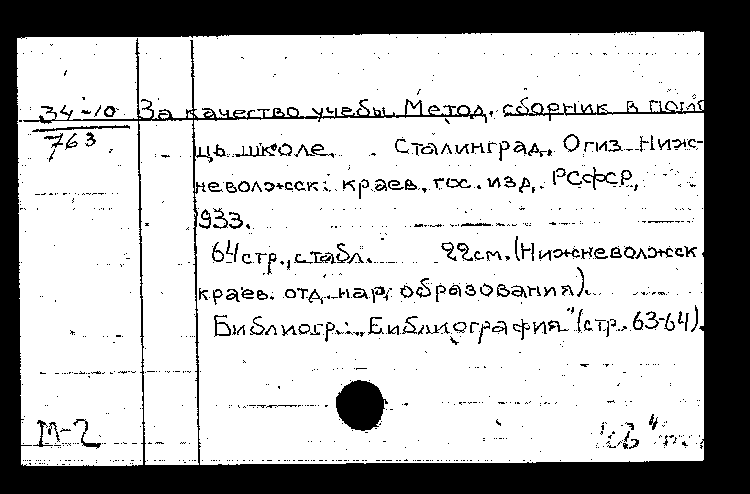 34-10 За качество учебы. Метод. сборник в помо
763
щь школе. Сталинград, Огиз Ниж-
неволжск. краев. гос. изд. РСФСР,
1933.
64 стр., с табл. 22 см. (Нижневолжск.
краев. отд. нар. образования).
Библиогр.: „Библиография" (стр. 63-64).
М-2